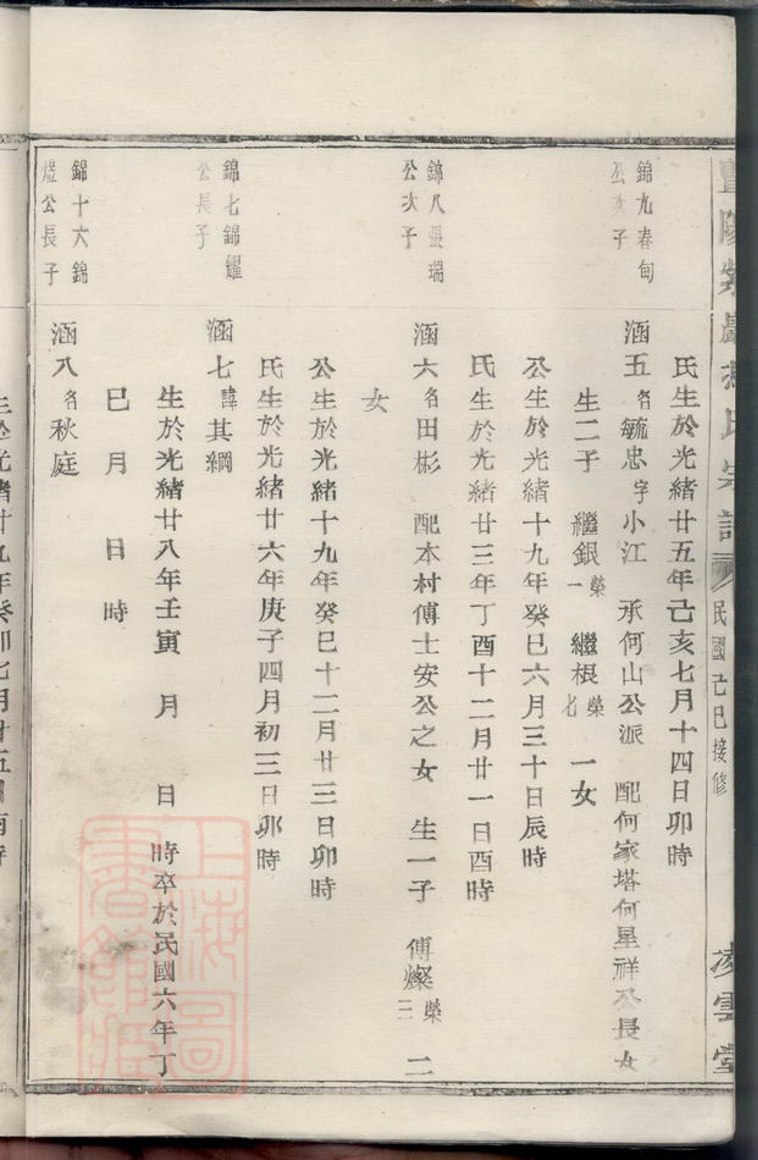 氏宗譜 民國己巳接修 凌雲堂
氏生於光緒廿五年己亥七月十四日卯時
錦九春旬
公次子
涵五名毓忠字小江 承何山公派 配何家塔何星祥公長女
生二子 繼銀榮一 繼根榮七 一女
公生於光緒十九年癸巳六月三十日辰時
氏生於光緒廿三年丁酉十二月廿一日酉時
錦八張瑞
公次子
涵六名田彬 配本村傅士安公之女 生一子 傅燦榮三 二
女
公生於光緒十九年癸巳十二月廿三日卯時
氏生於光緒廿六年庚子四月初三日卯時
錦七錦耀
公長子
涵七諱其綱
生於光緒廿八年壬寅 月 日 時卒於民國六年丁
巳 月 日 時
錦十六錦
煜公長子
涵八名秋庭
上海圖
書館藏